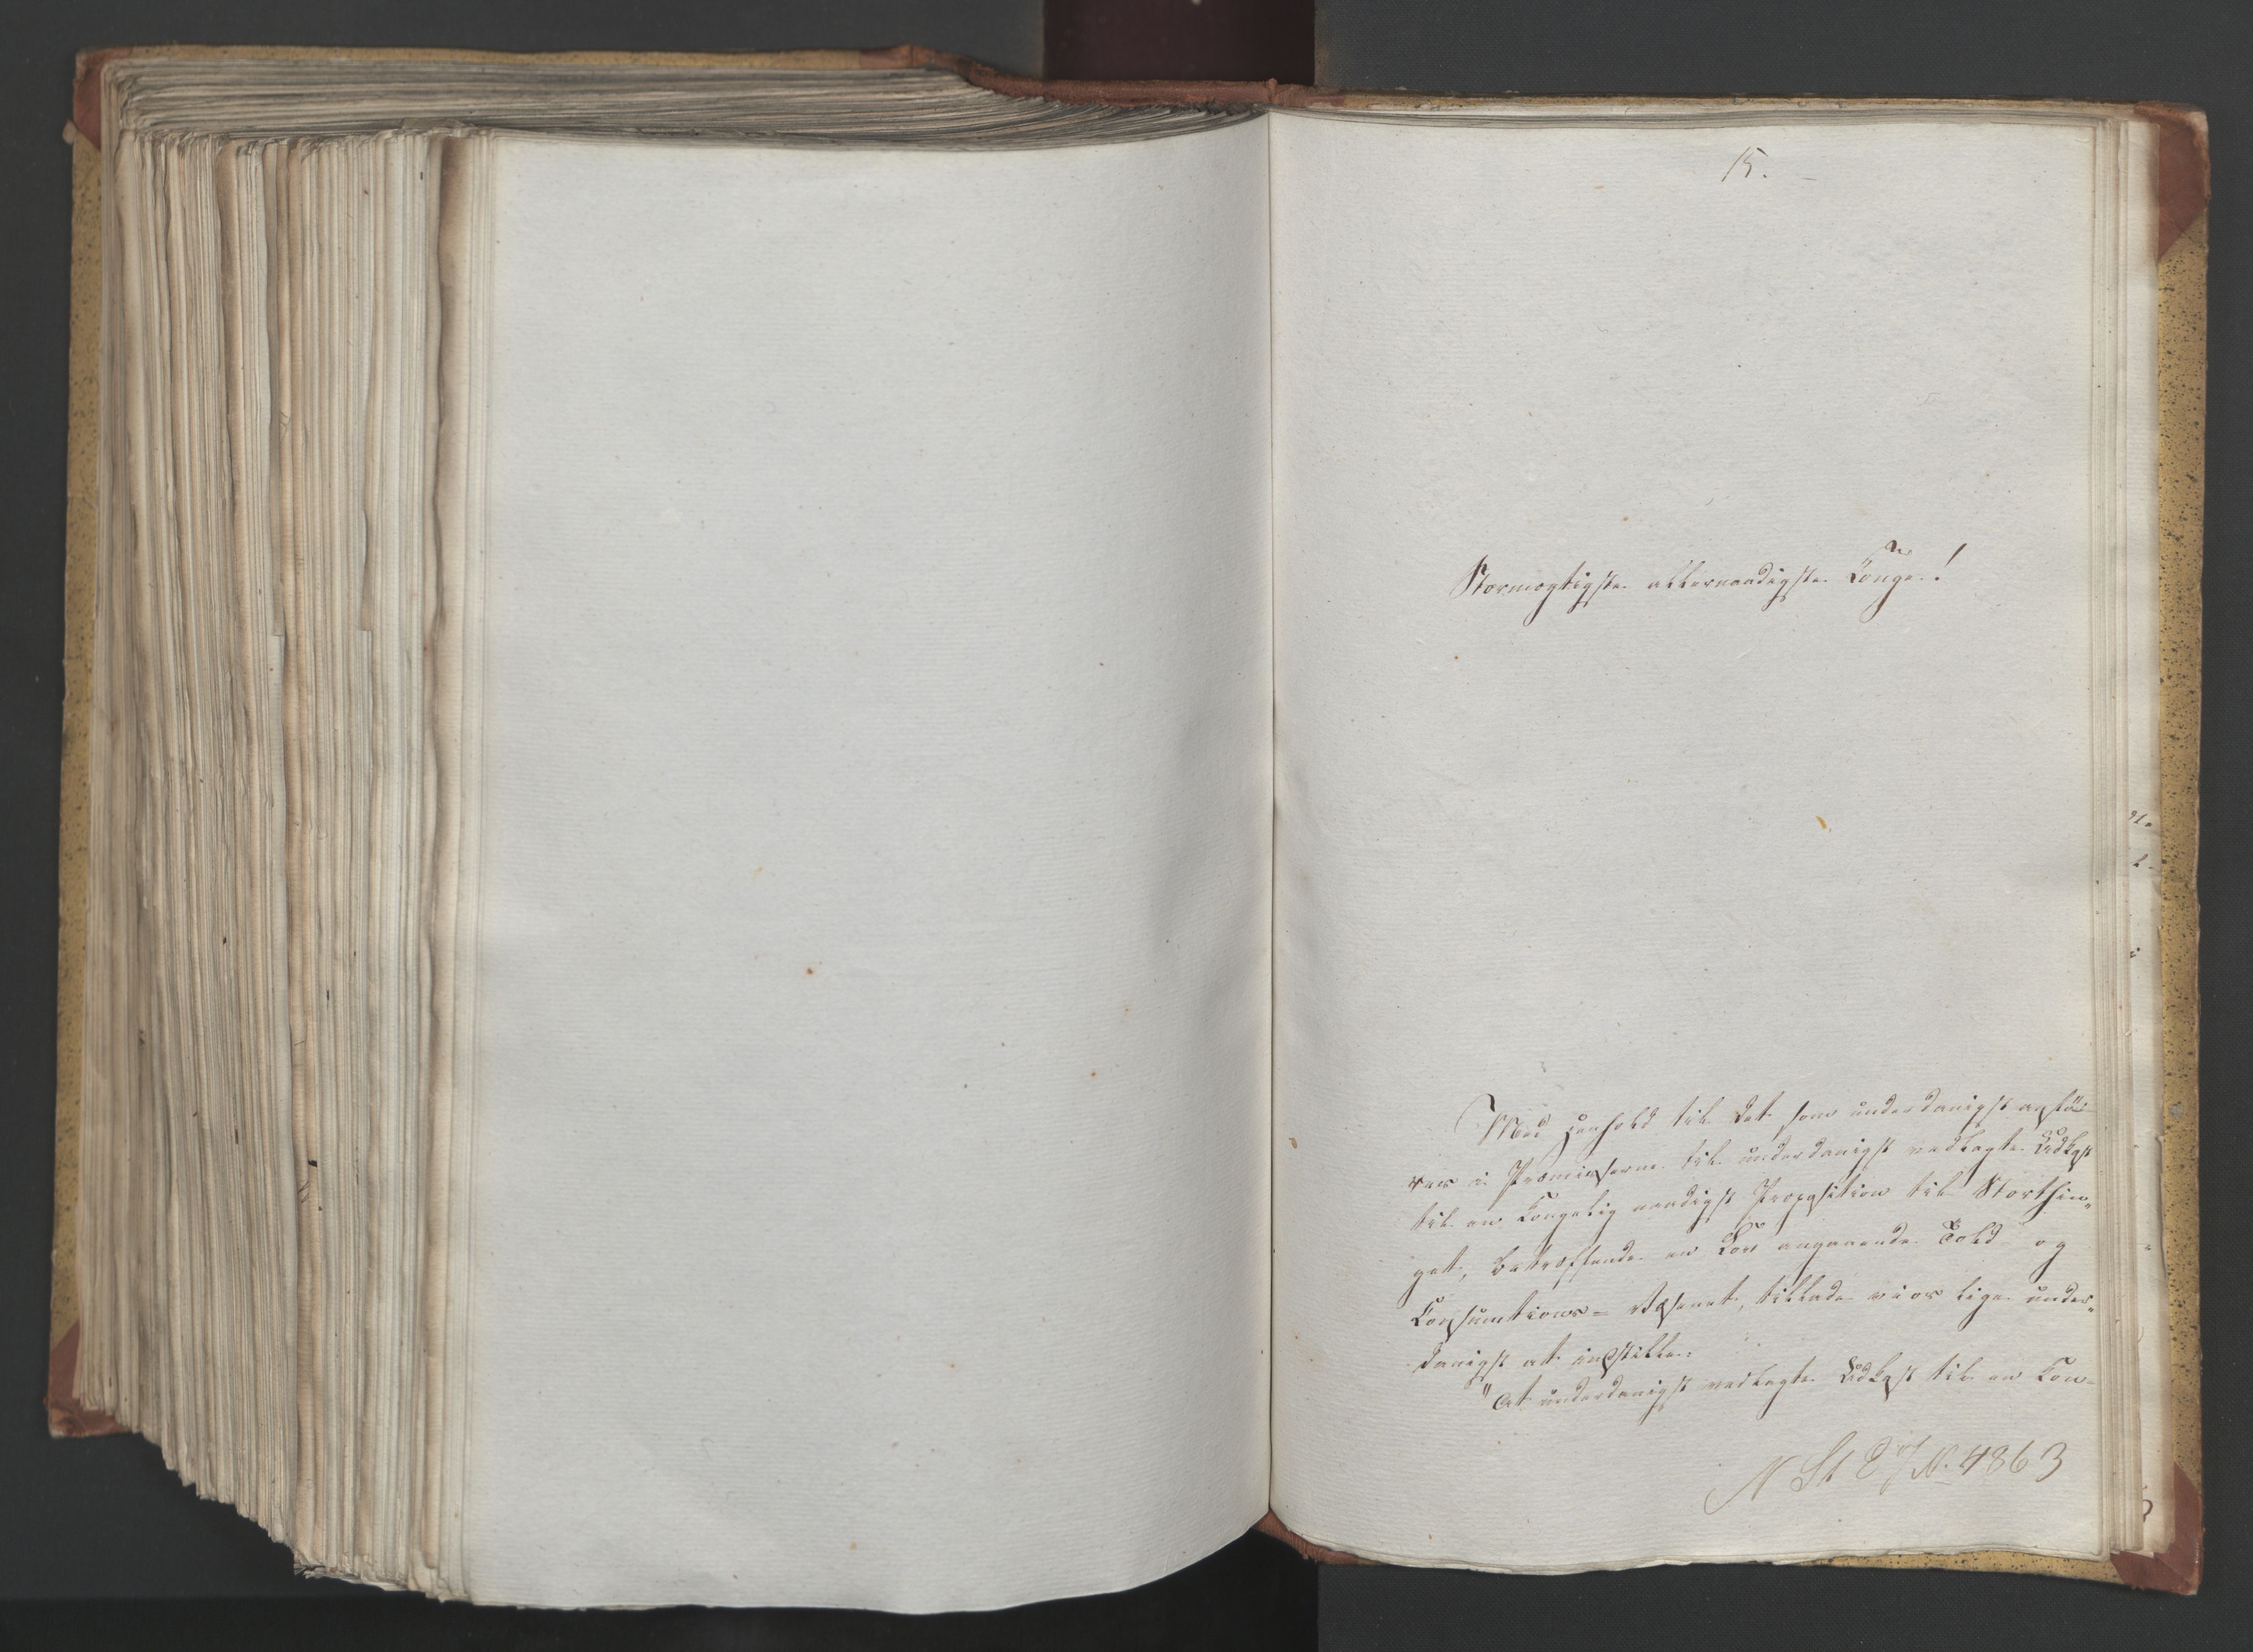 15.
Stormægtigste allernaadigste Konge!
Med Henhold til Det som underdanigst anfø-
res i Præmisserne til underdanigst vedlagte Udkast
til en Kongelig naadigst Proposition til Storthin„
get, betræffende en Lov angaaende Told- og
Consumtions- Væsenet, tillade vi os lige under„
danigst at indstille:
"At underdanigst vedlagte Udkast til en Kon-
N St E J N. 4863